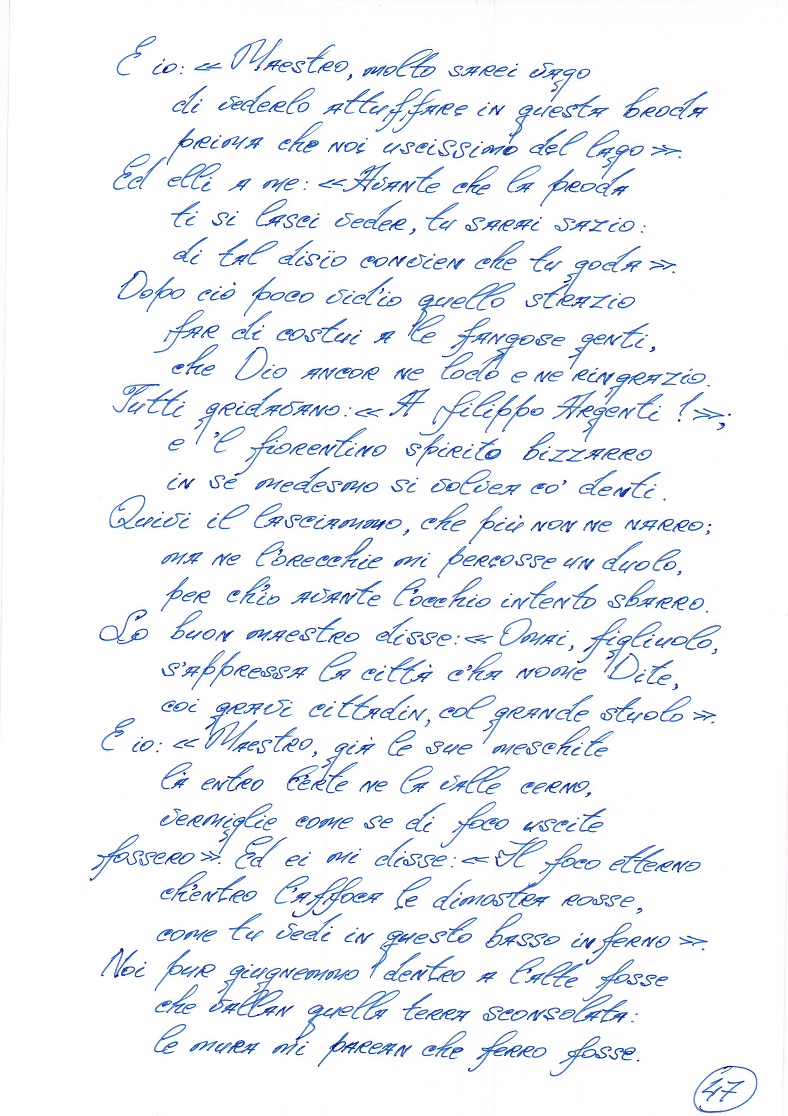 E io: «Maestro, molto sarei vago
di vederlo attuffare in questa broda
prima che noi uscissimo del lago».
Ed elli a me: «Avante che la proda
ti si lasci veder, tu sarai sazio:
di tal disïo convien che tu goda».
Dopo ciò poco vid'io quello strazio
far di costui a le fangose genti,
che Dio ancor ne lodo e ne ringrazio.
Tutti gridavano: «A Filippo Argenti!»;
e 'l fiorentino spirito bizzarro
in sé medesmo si volvea co' denti.
Quivi il lasciammo, che più non ne narro;
ma ne l'orecchie mi percosse un duolo,
per ch'io avante l'occhio intento sbarro.
Lo buon maestro disse: «Omai, figliuolo,
s'appressa la città c'ha nome Dite,
coi gravi cittadin, col grande stuolo».
E io: «Maestro, già le sue meschite
là entro certe ne la valle cerno,
vermiglie come se di foco uscite
fossero». Ed ei mi disse: «Il foco etterno
ch'entro l'affoca le dimostra rosse,
come tu vedi in questo basso inferno».
Noi pur giugnemmo dentro a l'alte fosse
che vallan quella terra sconsolata:
le mura mi parean che ferro fosse.
47